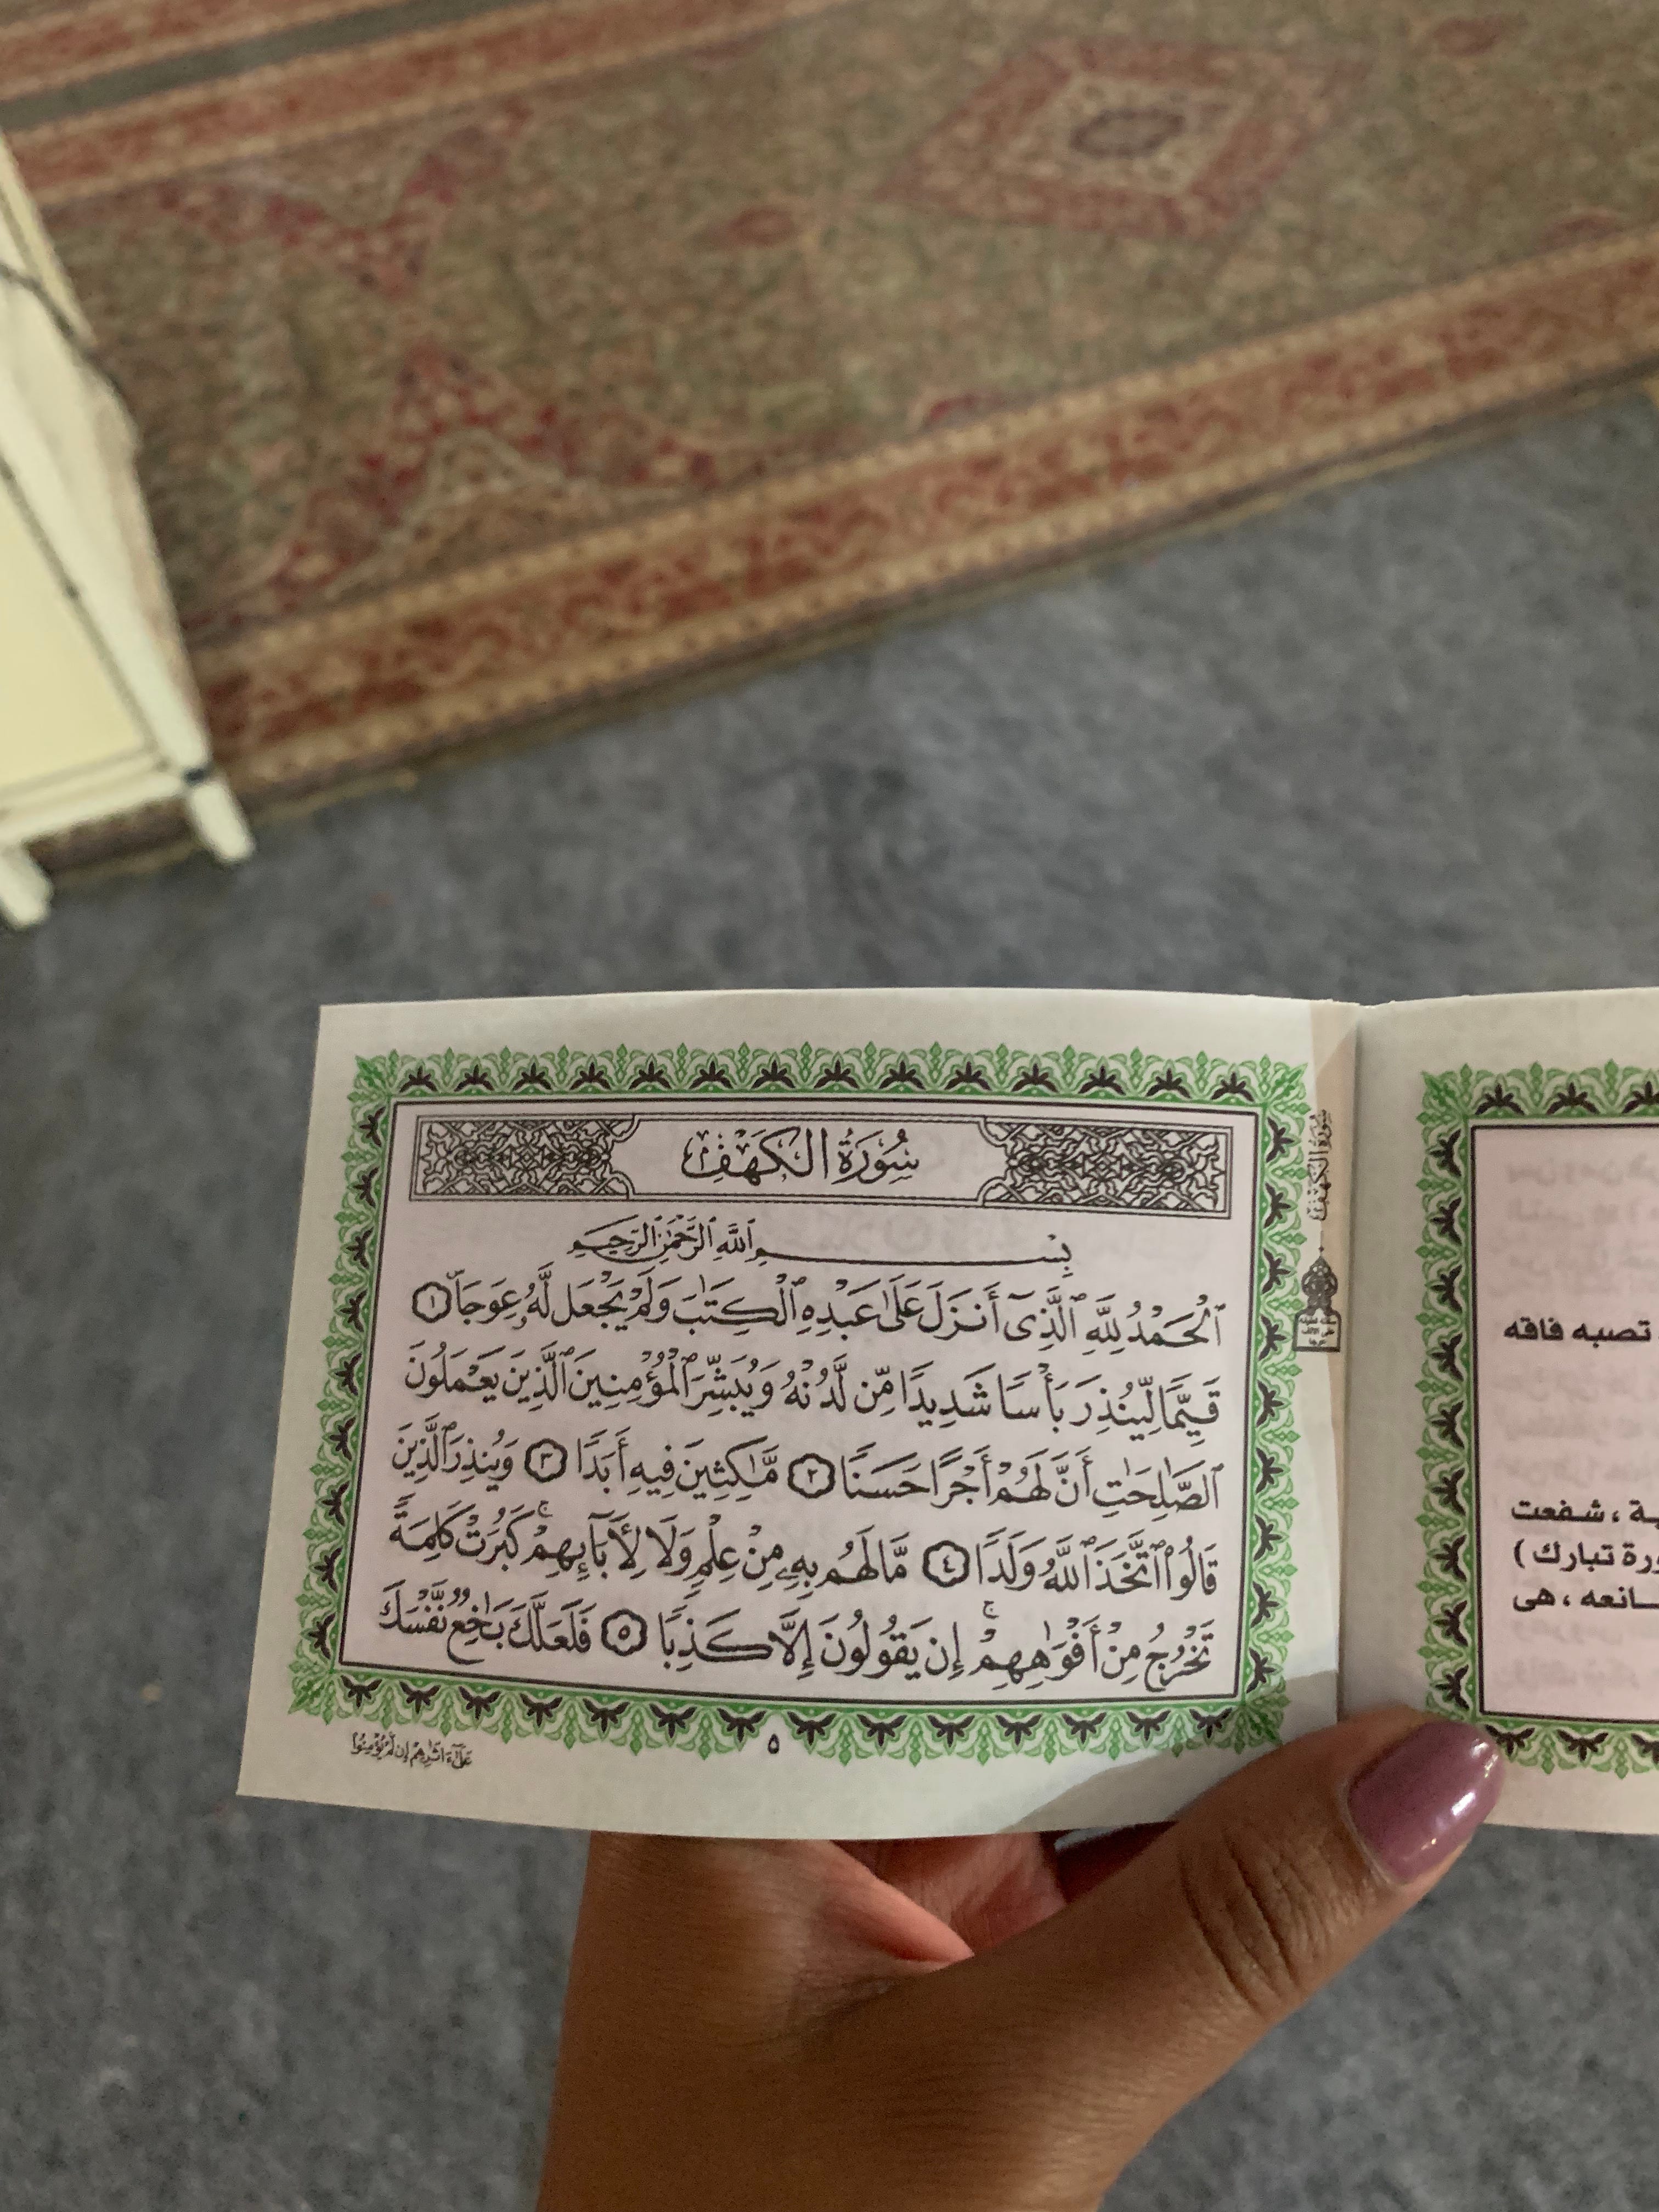 سُورَةُ الكَهْفِ
بِسْمِ ٱللَّهِ ٱلرَّحْمَٰنِ ٱلرَّحِيمِ
ٱلْحَمْدُ لِلَّهِ ٱلَّذِىٓ أَنزَلَ عَلَىٰ عَبْدِهِ ٱلْكِتَٰبَ وَلَمْ يَجْعَل لَّهُۥ عِوَجَاۜ ١
قَيِّمًا لِّيُنذِرَ بَأْسًا شَدِيدًا مِّن لَّدُنْهُ وَيُبَشِّرَ ٱلْمُؤْمِنِينَ ٱلَّذِينَ يَعْمَلُونَ
ٱلصَّٰلِحَٰتِ أَنَّ لَهُمْ أَجْرًا حَسَنًا ٢ مَّٰكِثِينَ فِيهِ أَبَدًا ٣ وَيُنذِرَ ٱلَّذِينَ
قَالُوا۟ ٱتَّخَذَ ٱللَّهُ وَلَدًا ٤ مَّا لَهُم بِهِۦ مِنْ عِلْمٍ وَلَا لِأَبَآئِهِمْ ۚ كَبُرَتْ كَلِمَةً
تَخْرُجُ مِنْ أَفْوَٰهِهِمْ ۚ إِن يَقُولُونَ إِلَّا كَذِبًا ٥ فَلَعَلَّكَ بَٰخِعٌ نَّفْسَكَ
٥
عَلَىٰٓ ءَاثَٰرِهِمْ إِن لَّمْ يُؤْمِنُوا۟
سُورَةُ الكَهْفِ
تصبه فاقه
شفعت
تبارك )
هى